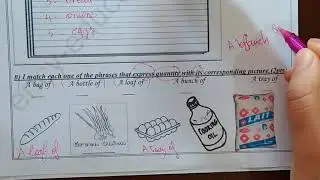 4. onions
5. eggs
A bunch
B) I match each one of the phrases that express quantity with its corresponding picture. (2pts)
A bag of A bottle of A loaf of A bunch of A tray of
COOKING
OIL
LAIT
A loaf of
A tray of